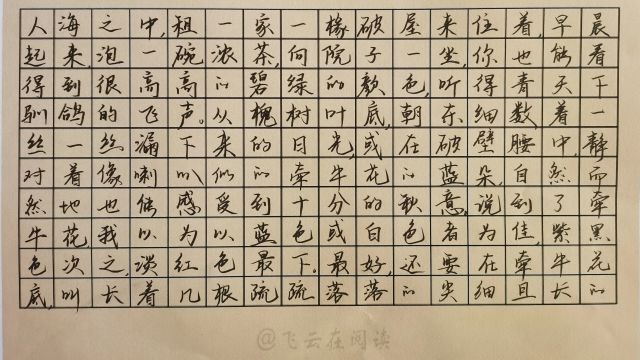 人海之中,租一家一椽破屋来住着,早晨
起来,泡一碗浓茶,向院子一坐,你也能看
得到很高高的碧绿的颜色,听得青天下
驯鸽的飞声。从槐树叶底,朝东细数,着一
丝一丝漏下来的日光,或在破壁腰中,静
对着像喇叭似的牵牛花的蓝朵,自然而
然地也能感受到十分的秋意,说到了牵
牛花,我以为以蓝色或白色者为佳,紫黑
色次之,淡红色最下。最好,还要在牵牛花
底,叫长着几根疏疏落落的尖细且长的
@飞云在阅读